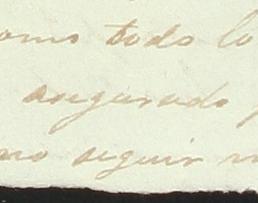 como todo lo
asegurado
mo seguir